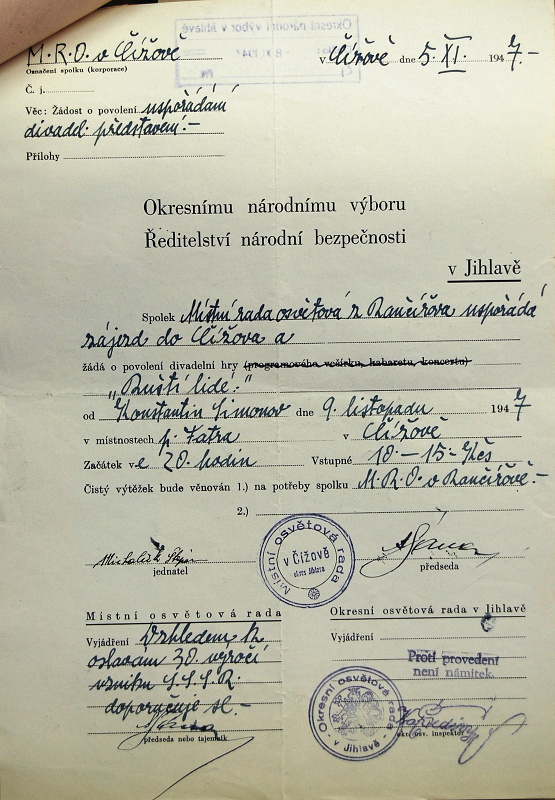 Okresní národní výbor v Jihlavě
M. R. O. v Čížově v Čížově dne 5. XI. 1947.-
Označení spolku (korporace)
Č. j.
Věc: Žádost o povolení uspořádání
divadel. představení.-
Přílohy
Okresnímu národnímu výboru
Ředitelství národní bezpečnosti
v Jihlavě
Spolek Místní rada osvětová z Rančířova uspořádá
zájezd do Čížova a
žádá o povolení divadelní hry (programového večírku, kabaretu, koncertu)
„Ruští lidé."
od Konstantin Simonov dne 9. listopadu 1947
v místnostech p. Fatra v Čížově
Začátek ve 20 hodin Vstupné 10.-15.- Kčs
Čistý výtěžek bude věnován 1.) na potřeby spolku M. R. O. v Rančířově.-
2.)
jednatel
předseda
Místní osvětová rada
v Čížově
okres Jihlava
Místní osvětová rada
Vyjádření Vzhledem k
oslavám 30. výročí
vzniku S.S.S.R.
doporučuje se.-
předseda nebo tajemník
Okresní osvětová rada v Jihlavě
Vyjádření
Proti provedení
není námitek.
Okresní osvětová rada
- v Jihlavě -
okr. osv. inspektor